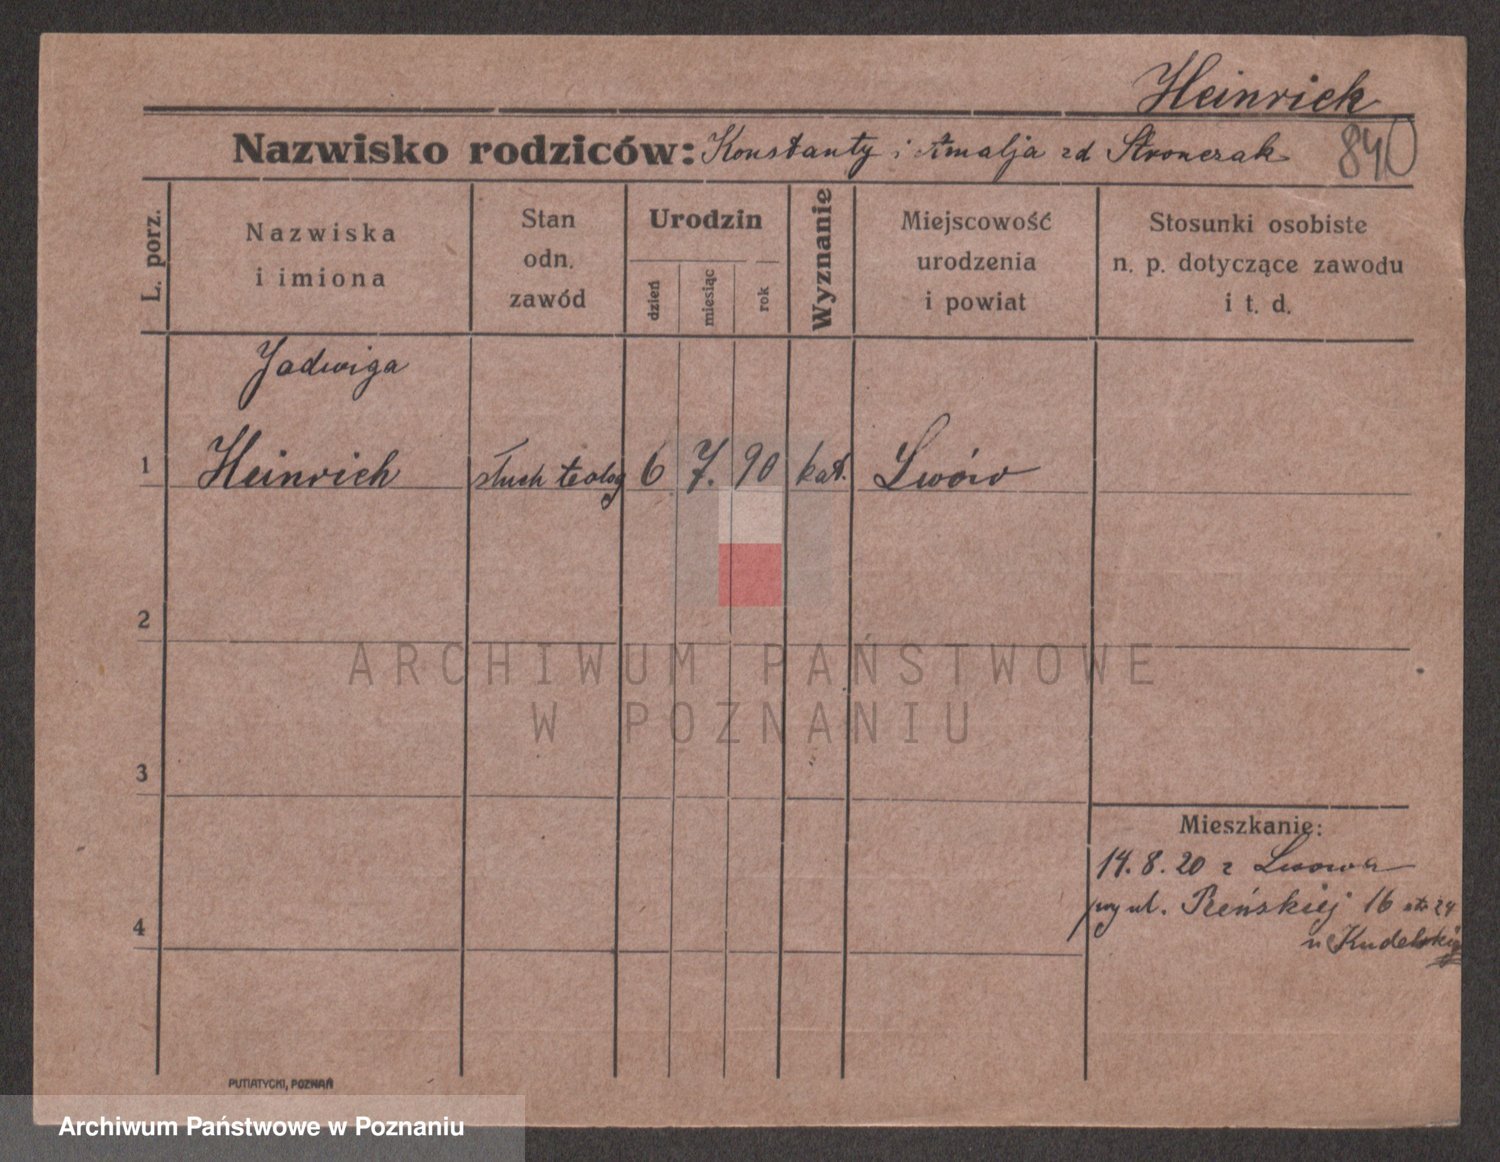 Heinrich
Nazwisko rodziców: Konstanty i Amalja zd Stronczak
840
L. porz.
Nazwiska
i imiona
Stan
odn.
zawód
Urodzin
dzień
miesiąc
rok
Wyznanie
Miejscowość
urodzenia
i powiat
Stosunki osobiste
n. p. dotyczące zawodu
i t. d.
Jadwiga
1 Heinrich słuch teolog 6 7. 90 kat. Lwów
2
ARCHIWUM PAŃSTWOWE
W POZNANIU
3
Mieszkanie:
14.8.20 z Lwowa
przy ul. 16 24
4
u Kudelskiej
PUTIATYCKI, POZNAŃ
Archiwum Państwowe w Poznaniu